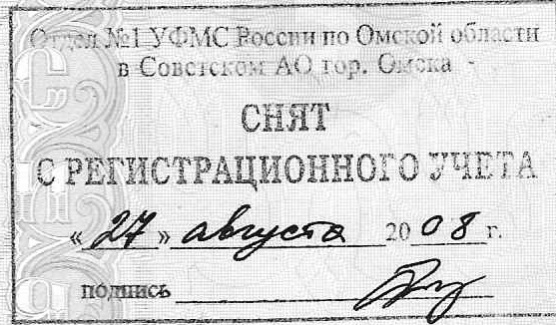 Отдел №1 УФМС России по Омской области
в Советском АО гор. Омска
СНЯТ
С РЕГИСТРАЦИОННОГО УЧЕТА
«27» августа 2008 г.
подпись